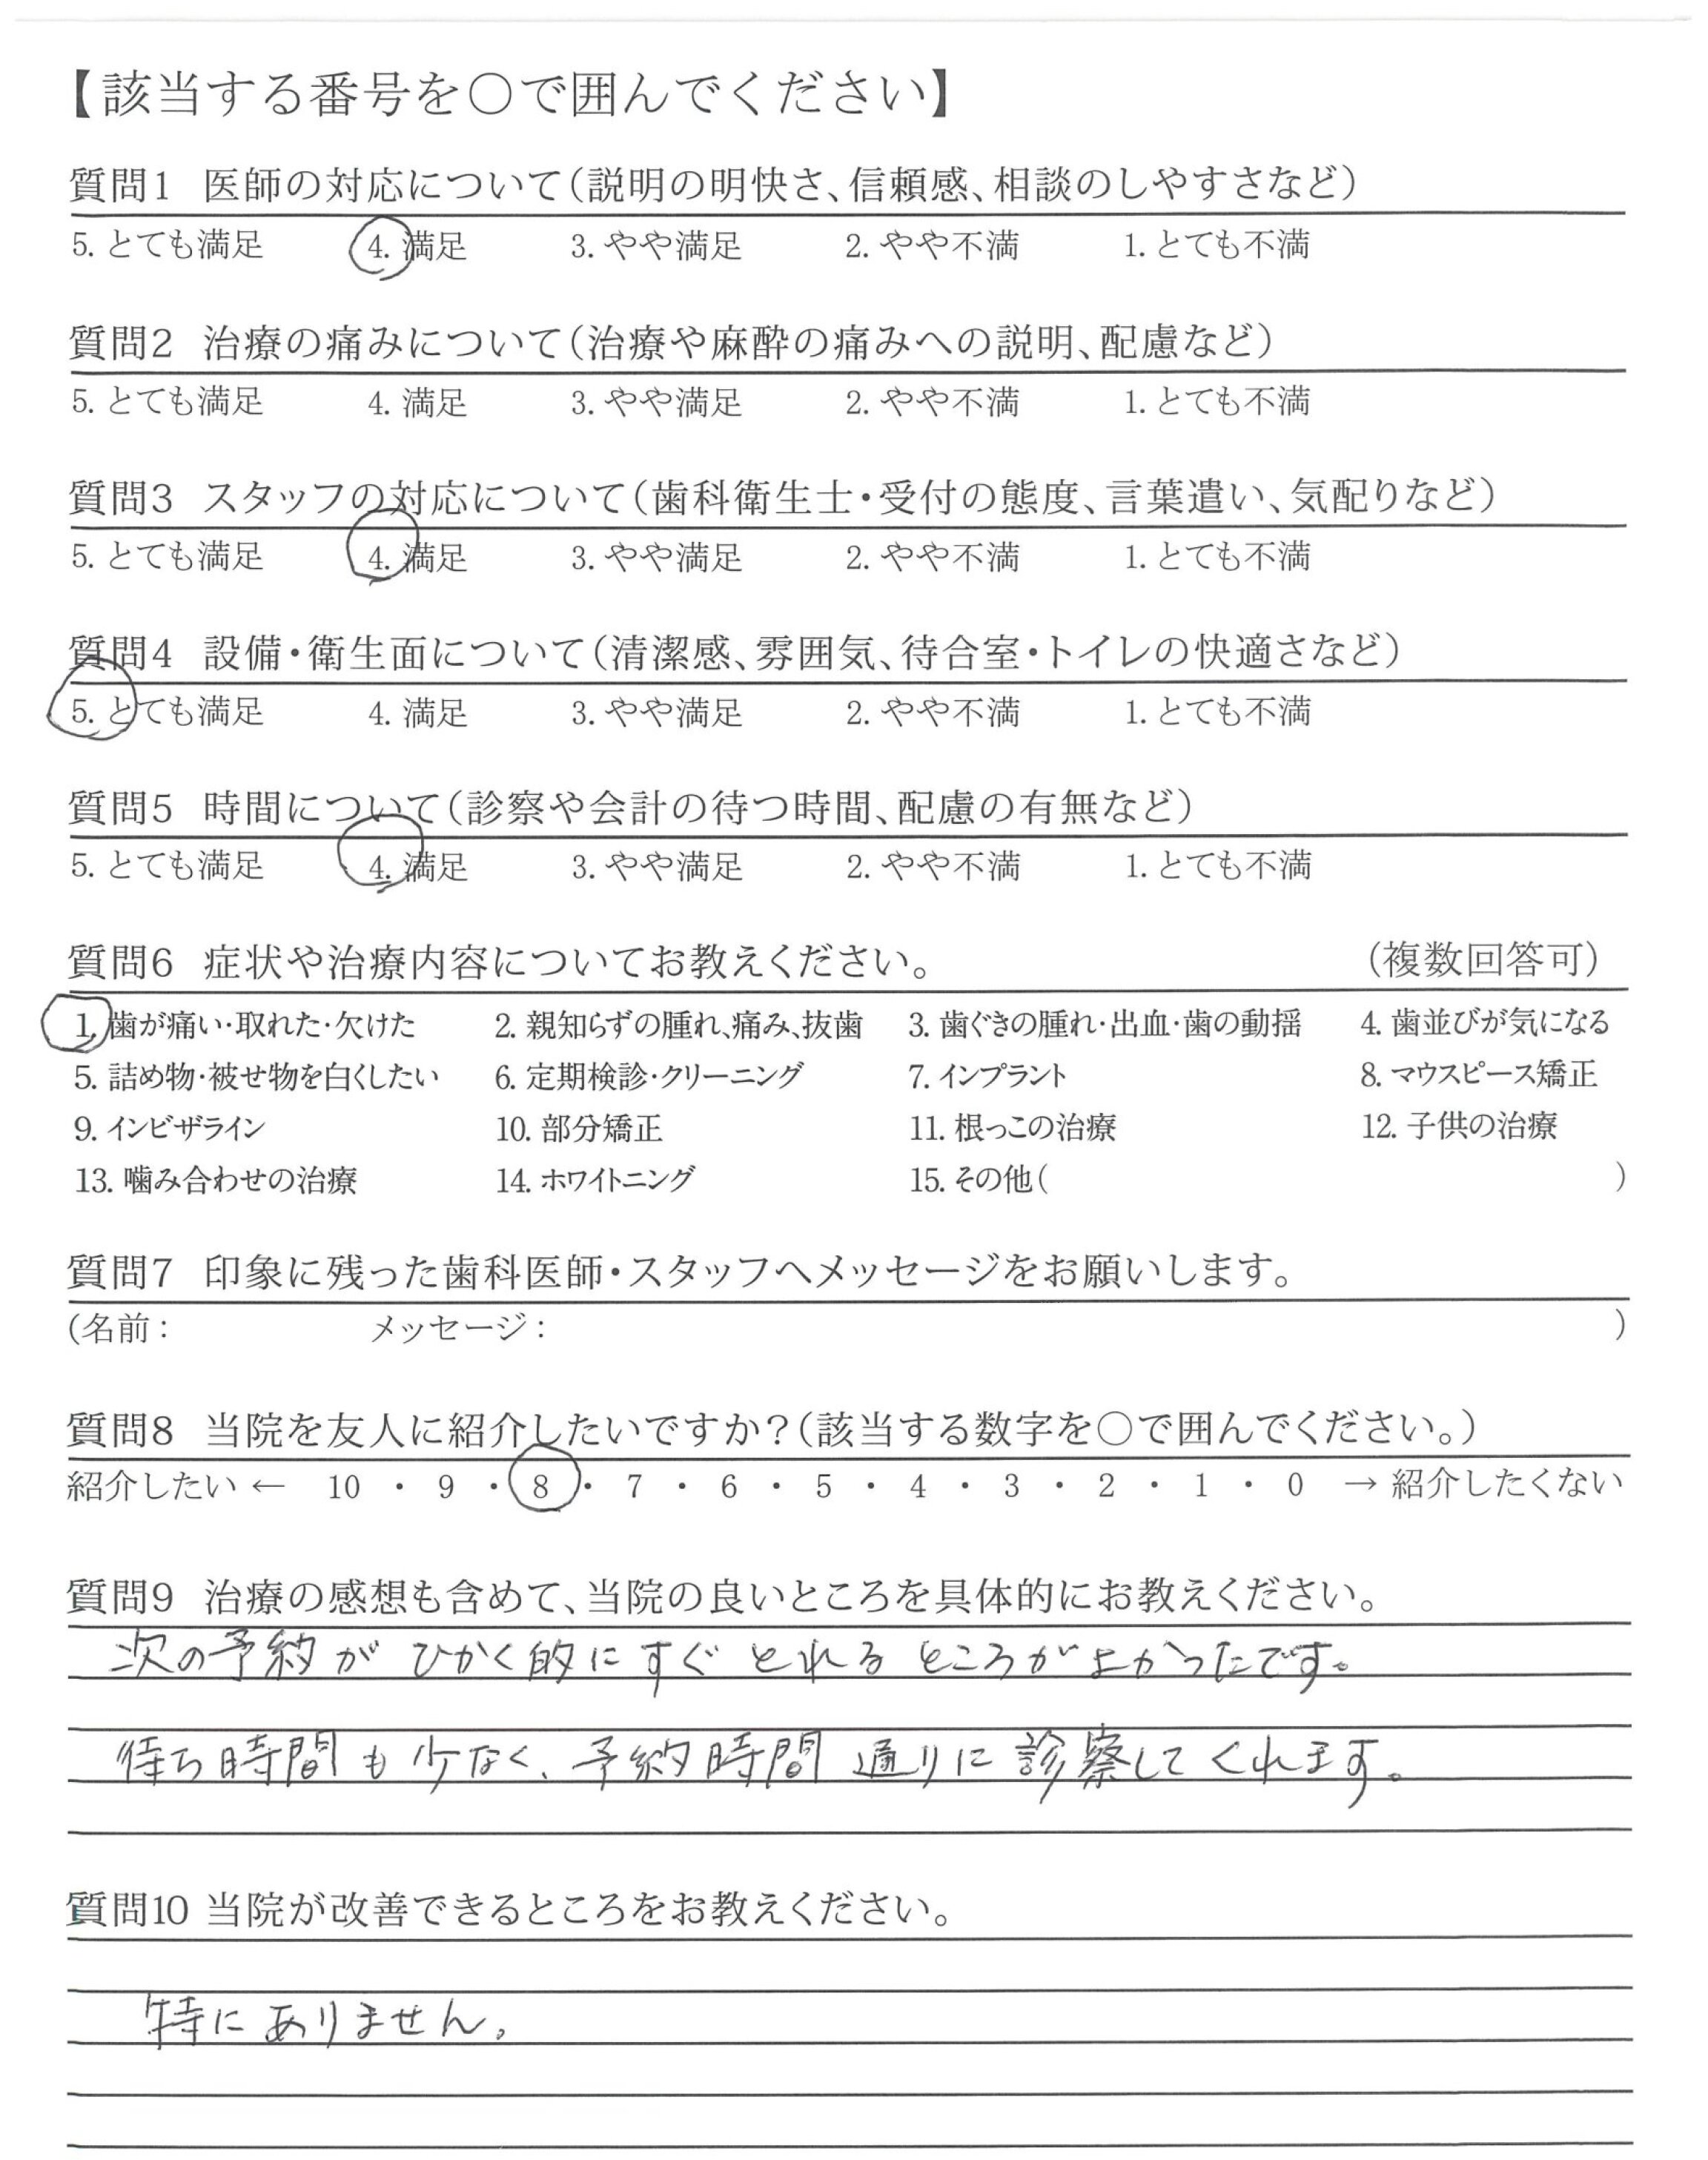 【該当する番号を○で囲んでください】
質問1 医師の対応について(説明の明快さ、信頼感、相談のしやすさなど)
5. とても満足 4. 満足 3. やや満足 2. やや不満 1. とても不満
質問2 治療の痛みについて(治療や麻酔の痛みへの説明、配慮など)
5. とても満足 4. 満足 3. やや満足 2. やや不満 1. とても不満
質問3 スタッフの対応について(歯科衛生士・受付の態度、言葉遣い、気配りなど)
5. とても満足 4. 満足 3. やや満足 2. やや不満 1. とても不満
質問4 設備・衛生面について(清潔感、雰囲気、待合室・トイレの快適さなど)
5. とても満足 4. 満足 3. やや満足 2. やや不満 1. とても不満
質問5 時間について(診察や会計の待つ時間、配慮の有無など)
5. とても満足 4. 満足 3. やや満足 2. やや不満 1. とても不満
質問6 症状や治療内容についてお教えください。 (複数回答可)
1. 歯が痛い・取れた・欠けた 2. 親知らずの腫れ、痛み、抜歯 3. 歯ぐきの腫れ・出血・歯の動揺 4. 歯並びが気になる
5. 詰め物・被せ物を白くしたい 6. 定期検診・クリーニング 7. インプラント 8. マウスピース矯正
9. インビザライン 10. 部分矯正 11. 根っこの治療 12. 子供の治療
13. 噛み合わせの治療 14. ホワイトニング 15. その他( )
質問7 印象に残った歯科医師・スタッフへメッセージをお願いします。
(名前: メッセージ: )
質問8 当院を友人に紹介したいですか?(該当する数字を○で囲んでください。)
紹介したい ← 10 ・ 9 ・ 8 ・ 7 ・ 6 ・ 5 ・ 4 ・ 3 ・ 2 ・ 1 ・ 0 → 紹介したくない
質問9 治療の感想も含めて、当院の良いところを具体的にお教えください。
次の予約が ひかく的に すぐ とれる ところがよかったです。
待ち時間も少なく、予約時間通りに診察してくれます。
質問10 当院が改善できるところをお教えください。
特にありません。